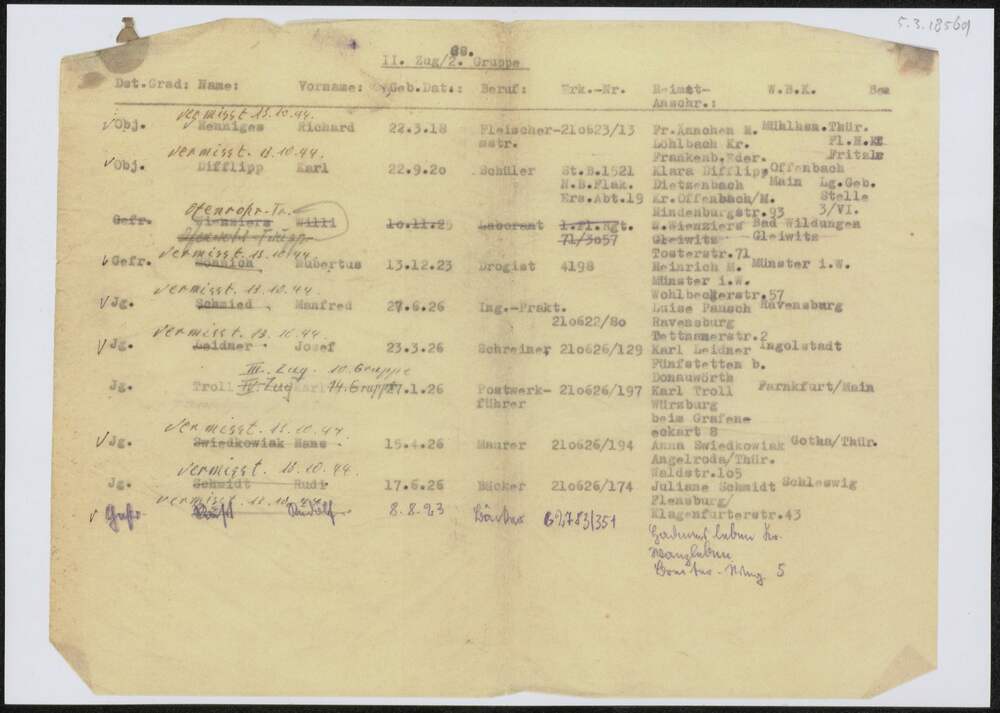 5.3.18569
6e.
II. Zug/2. Gruppe
Dst.Grad: Name: Vorname: Geb.Dat.: Beruf: Erk.-Nr. Heimat- W.B.K. Bem
Anschr.:
vermisst 13.10.44.
Obj. Henniges Richard 22.3.18 Fleischer- 21o623/13 Fr.Ännchen H. Mühlhsn.Thür.
mstr. Löhlbach Kr. Fl.N.
Frankenb.Eder. Fritzlr
vermisst. 13.10.44.
Obj. Difflipp Karl 22.9.2o Schüler St.B.1521 Klara Difflipp Offenbach
N.B.Flak. Dietzenbach Main Lg.Geb.
Ers.Abt.19 Kr.Offenbach/M. Stelle
Hindenburgstr.93 3/VI.
Ofenrohr-Tr.
Gefr. Wienziers Willi 1o.11.25 Laborant 1.Fl.Rgt. W.Wienziers Bad Wildungen
Ofenrohr-Trupp 71/3o57 Gleiwitz Gleiwitz
Tosterstr.71
vermisst. 13.10.44
Gefr. Hubertus 13.12.23 Drogist 4198 Heinrich M. Münster i.W.
Münster i.W.
Wohlbeckerstr.57
vermisst. 13.10.44.
Jg. Schmied Manfred 27.6.26 Ing.-Prakt. Luise Pausch Ravensburg
21o622/8o Ravensburg
Tettnanerstr.2
vermisst. 13.10.44
Jg. Leidner Josef 23.3.26 Schreiner 21o626/129 Karl Leidner Ingolstadt
Fünfstetten b.
Donauwörth
III. Zug. 10. Gruppe
Jg. Troll IV. Zug Karl 14. Gruppe 27.1.26 Postwerk- 21o626/197 Karl Troll Farnkfurt/Main
führer Würzburg
beim Grafene-
eckart 8
vermisst. 13.10.44.
Jg. Swiedkowiak Hans 15.4.26 Maurer 21o626/194 Anna Swiedkowiak Gotha/Thür.
Angelroda/Thür.
Waldstr.1o5
vermisst. 13.10.44.
Jg. Schmidt Rudi 17.6.26 Bäcker 21o626/174 Juliane Schmidt Schleswig
Flensburg/
Klagenfurterstr.43
vermisst. 13.10.44
Gefr. Rudolf 8.8.23 Bäcker 62783/351
Hadmersleben Kr.
Wanzleben
Breiter-Weg 5